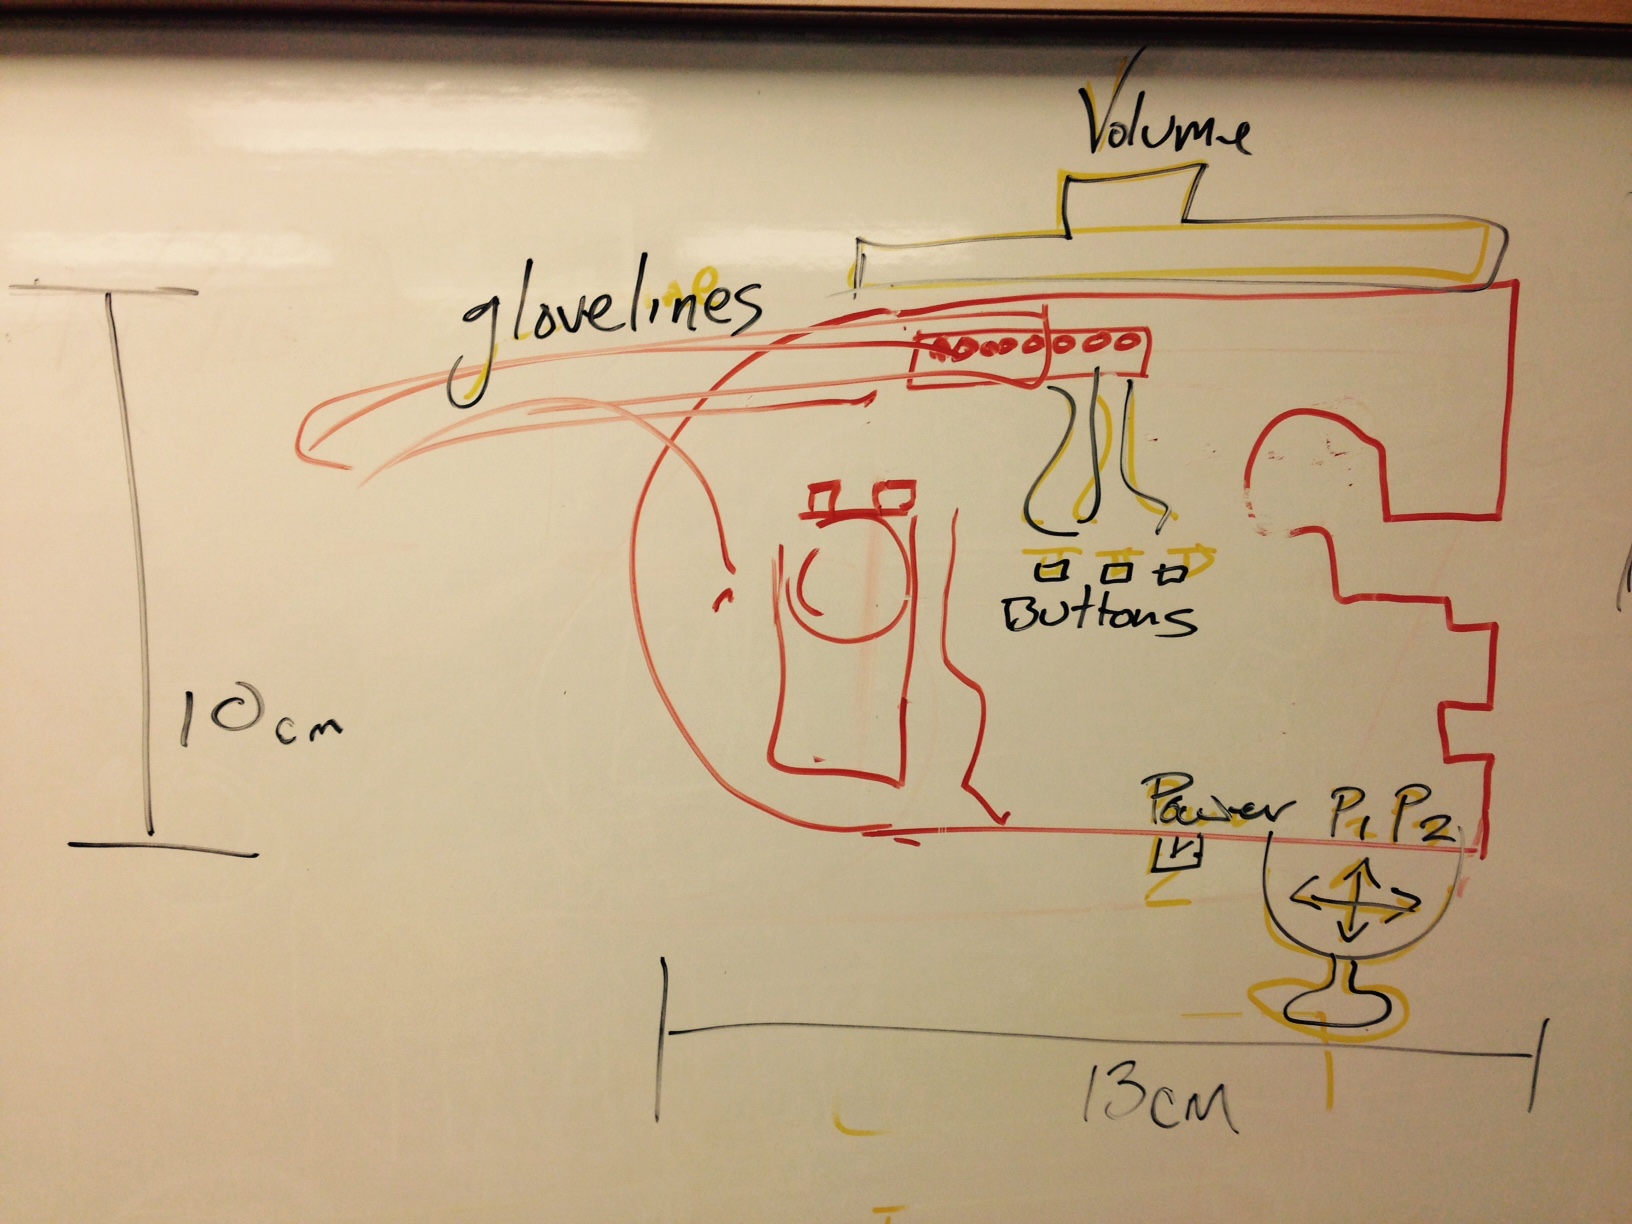 Volume
glovelines
Buttons
10cm
Power P1 P2
13cm